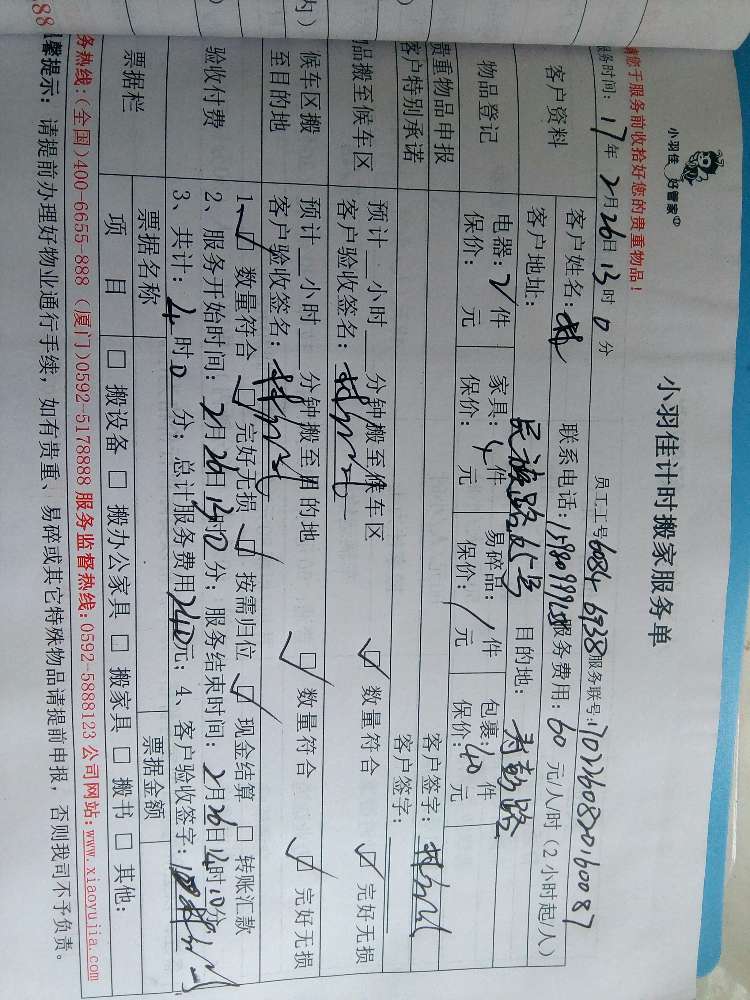 小羽佳 好管家
小羽佳计时搬家服务单
请您于服务前收拾好您的贵重物品!
服务时间: 17年 2月26日13时0分 员工工号6084 6938 服务联号:
客户资料
客户姓名:林 联系电话: 服务费用:60元/人/时(2小时起/人)
客户地址:民族路 号 目的地:
物品登记
电器:2件 家具:4件 易碎品:/件 包裹:40件
保价: 元 保价: 元 保价: 元 保价: 元
贵重物品申报 客户签字:
客户特别承诺 客户签字:
物品搬至候车区
预计__小时__分钟搬至候车区 数量符合 完好无损
客户验收签名:
候车区搬至目的地
预计__小时__分钟搬至目的地 数量符合 完好无损
客户验收签名:
验收付费
1、数量符合 完好无损 按需归位 现金结算 转账汇款
2、服务开始时间:2月26日13时0分; 服务结束时间:2月26日 时10分
3、共计:4时0分; 总计服务费用240元; 4、客户验收签字:
票据栏 票据名称 票据金额
项目 搬设备 搬办公家具 搬家具 搬书 其他:
务热线:(全国)400-6655-888 (厦门)0592-5178888 服务监督热线:0592-5888123 公司网站:www.xiaoyujia.com
温馨提示: 请提前办理好物业通行手续,如有贵重、易碎或其它特殊物品请提前申报,否则我司不予负责。